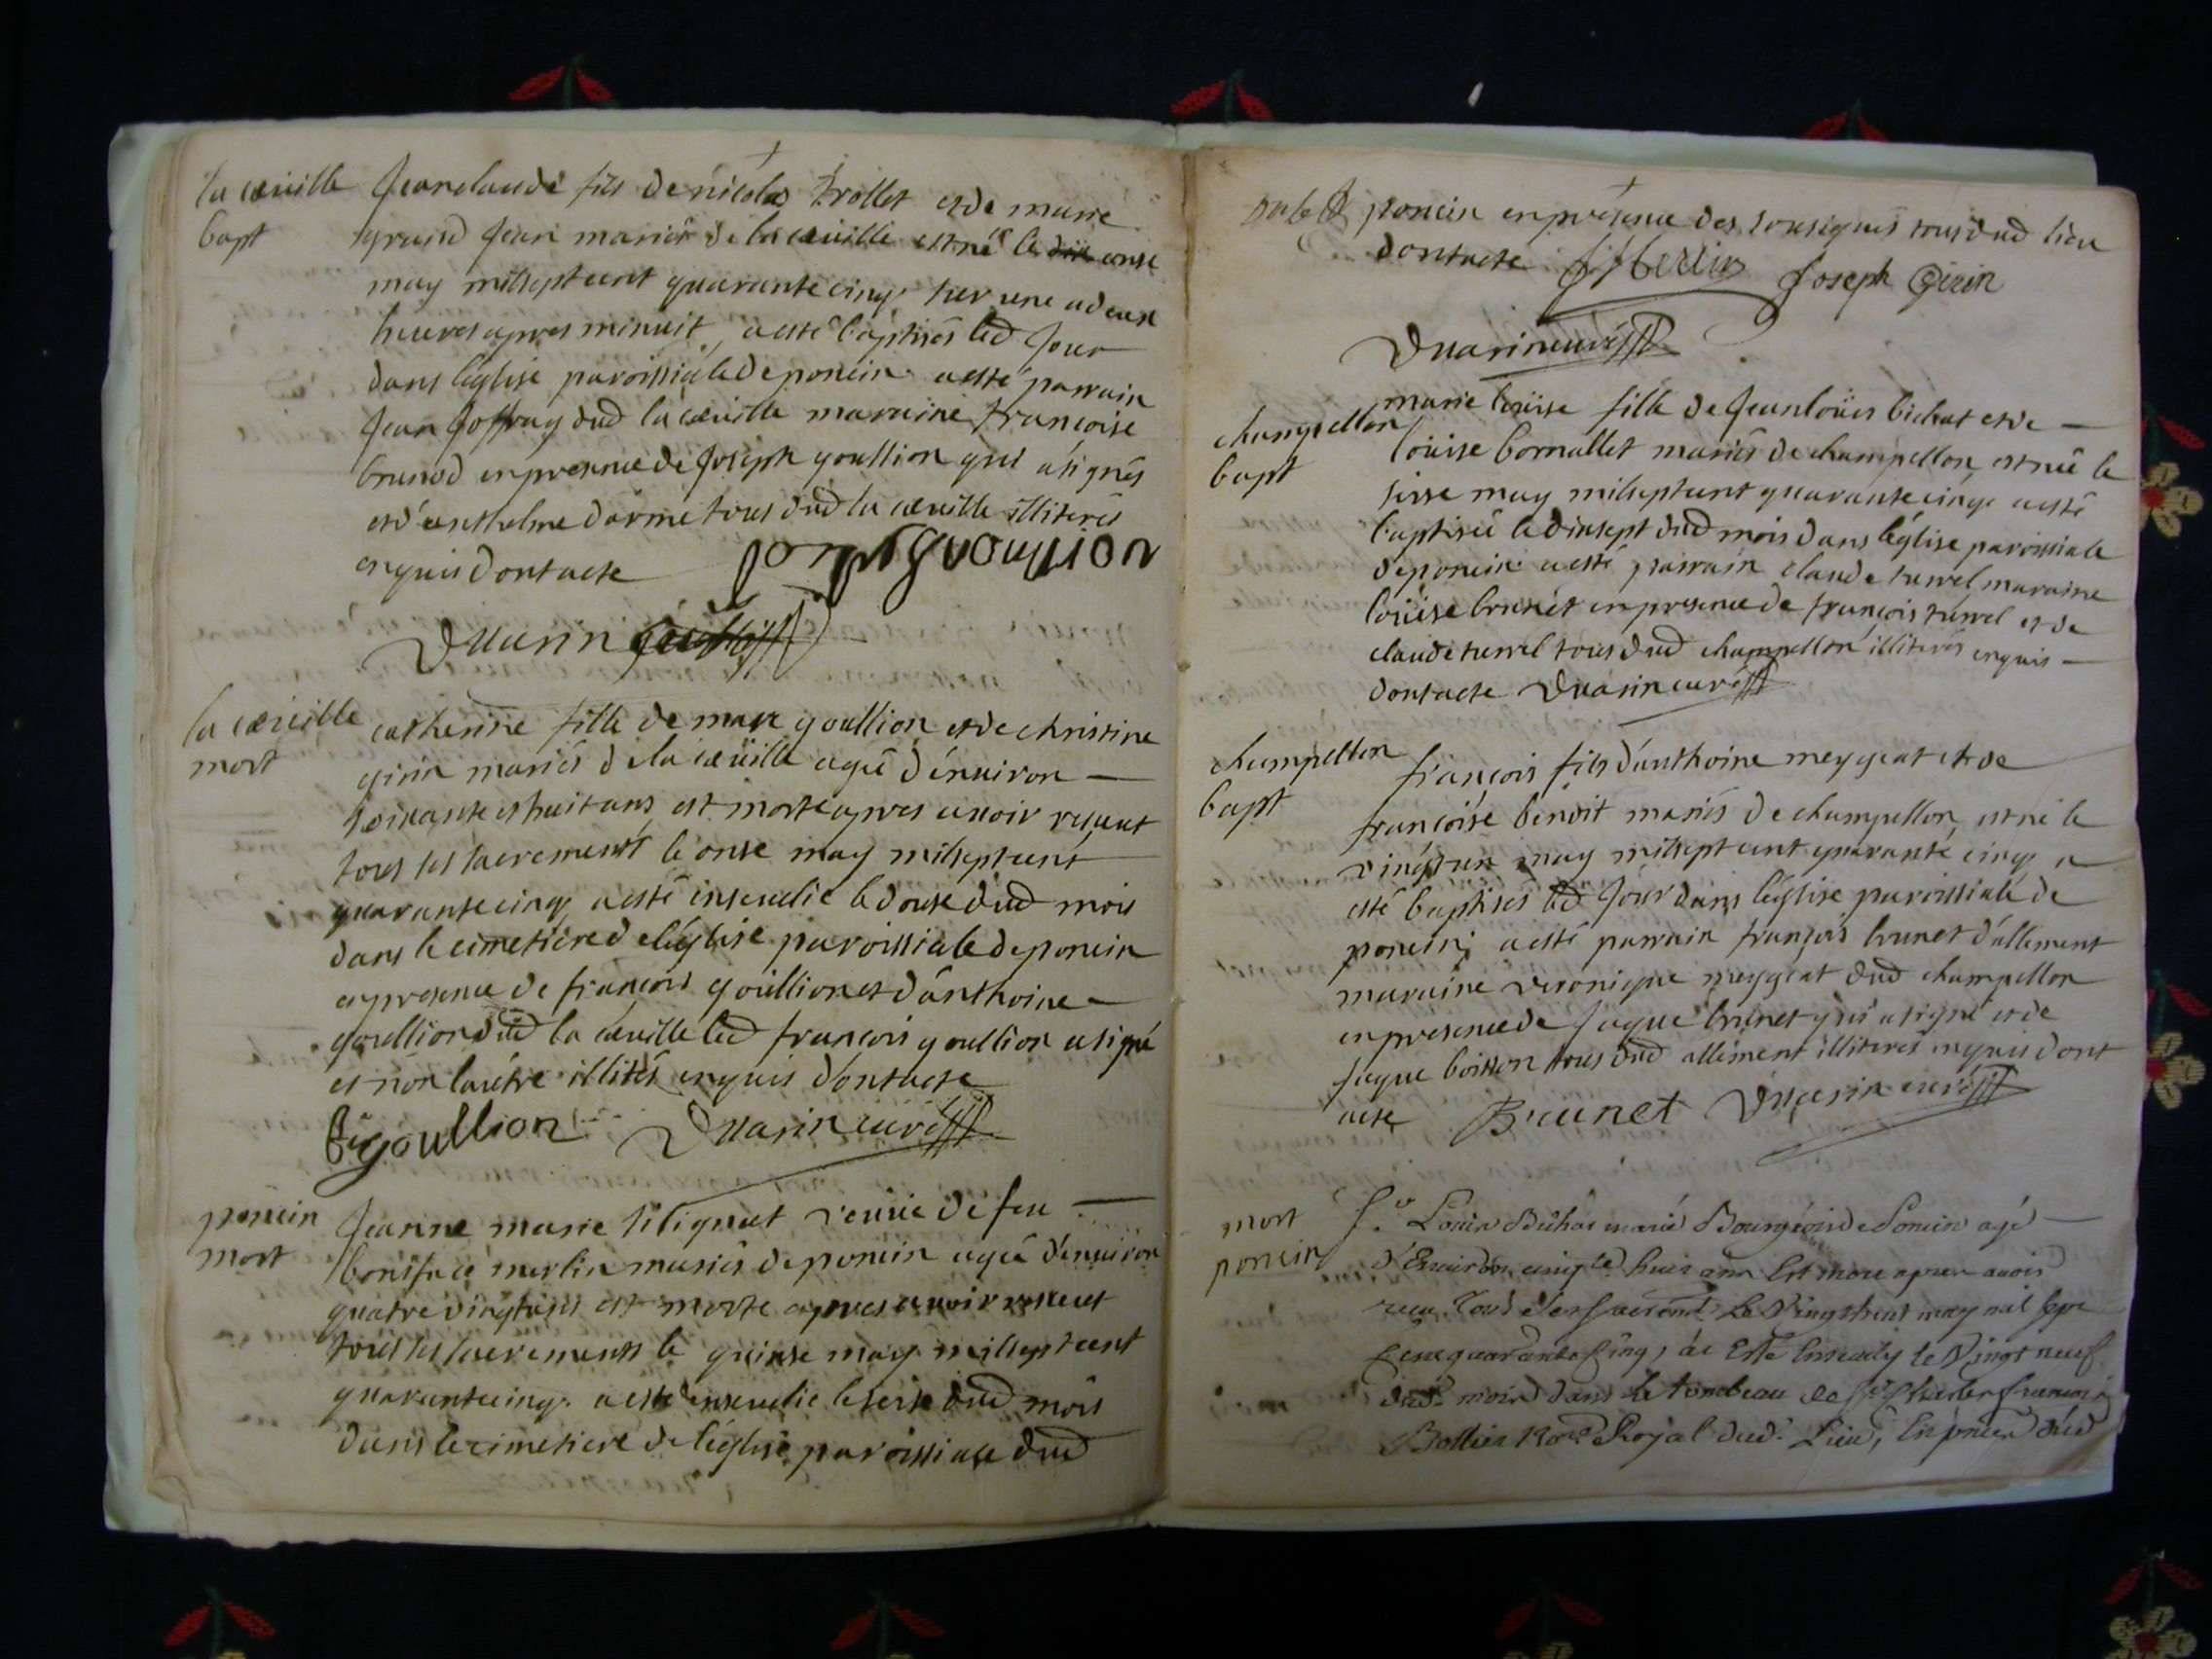 la cœuille
bapt
Jeanclaude fils de nicolas trollet et de marie
grand Jean mariés de la cœuille est né le dix onse
may millseptcent quarantecinq sur une a deux
heures apres minuit, a esté baptisés led Jour
dans léglise paroissiale de poncin a esté parrain
Jean Joffray dud la cœuille maraine françoise
brunod enpresence de Joseph goullion qui a signés
et d'anthelme darme tous dud la cœuille illiterés
enquis dont acte
Joseph goullion
D Marin curé
la cœuille
mort
catherine fille de marc goullion et de christine
girin mariés de la cœuille agée d'énuiron
soixante et huit ans est morte apres auoir reçeut
tous les sacrements le onse may millseptcent
quarantecinq a esté enseuelie le douse dud mois
dans le cimetiere de léglise paroissiale de poncin
enpresence de françois goullion et d'anthoine
goullion dud la cœuille led françois goullion a signé
et non lautre illités enquis dont acte
goullion D Marin curé
poncin
mort
Jeanne marie silignat veuue de feu
boniface merlin mariés de poncin agée d'enuiron
quatre vingts ans est morte apres auoir reseut
tous les sacrements le quinse may millseptcent
quarantecinq. a esté enseuelie le seise dud mois
dans le cimetiere de léglise paroissiale dud
poncin enprésence des sousignés tous dud lieu
dont acte Merlin Joseph Girin
D Marin curé
champellon
bapt
marie loüise fille de Jeanloüis bichat et de
loüise bornallet mariés de champellon, est née le
seise may millseptcent quarantecinq a esté
baptisée le dixsept dud mois dans léglise paroissiale
de poncin a esté parrain claude turrel maraine
loüise brunet enpresence de françois turrel et de
claude turrel tous dud champellon illiterés enquis
dont acte D Marin curé
champellon
bapt
françois fils d'anthoine meygeat et de
françoise benoit mariés de champellon, est né le
vingtun may millseptcent quarante cinq a
esté baptisés led Jour dans léglise paroissiale de
poncin, a esté parrain françois brunet d'allement
maraine veronique meygeat dud champellon
enpresence de Jaque brunet qui a signé et de
Jaque boisson tous dud allement illiteres enquis dont
acte Brunet D Marin curé
mort
poncin
Sr. Louis marié Bourgeois de Poncin agé
d'Enuiron cinqte. huit ans Est mort apres auoir
receu Tous ses Sacremts. Le Vingthuit may mil sept
Cent quarante Cinq, ái Esté Enseuely le Vingt neuf
dud. mois dans Le tombeau de Sr. Charles francois
Bollier Royal dud. Lieu, En dud